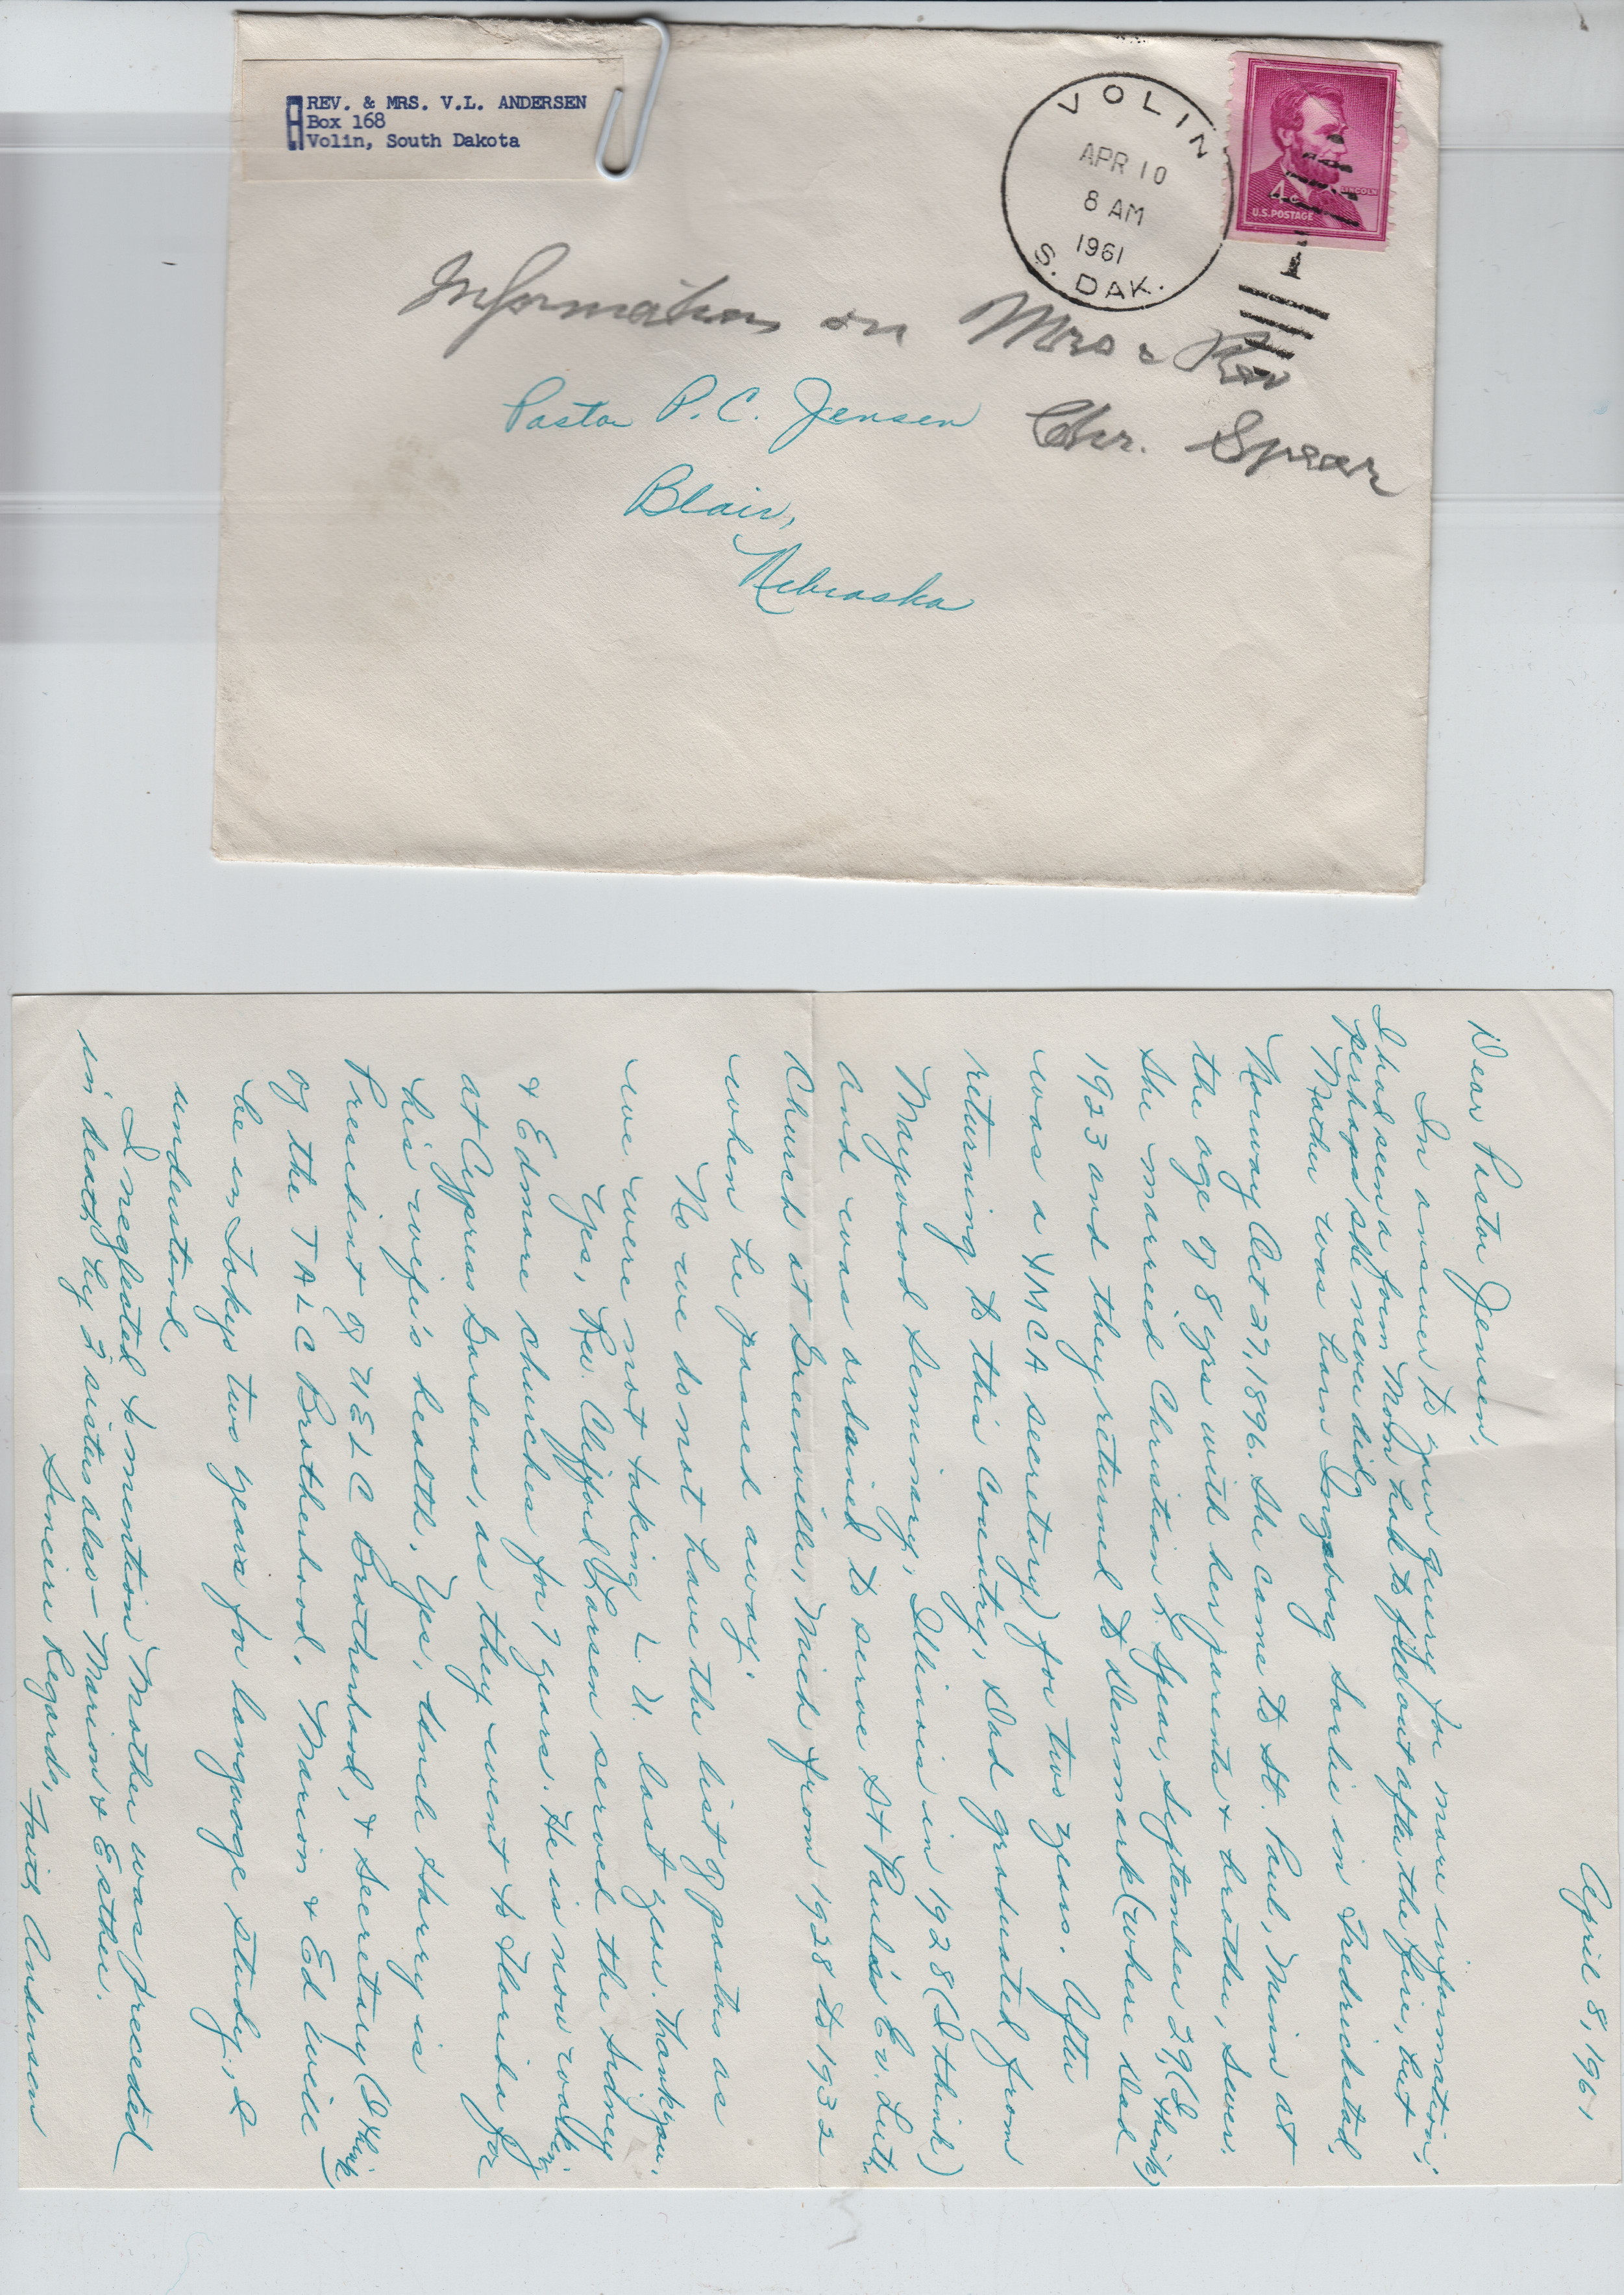 REV. & MRS. V.L. ANDERSEN
Box 168
Volin, South Dakota
VOLIN
APR 10
8 AM
1961
S. DAK.
LINCOLN
4¢
U.S. POSTAGE
Information on Mrs & Rev
Chr. Spear
Pastor P. C. Jensen
Blair,
Nebraska
April 8, 1961
Dear Pastor Jensen,
In answer to your query for more information;
I had seen a form Mom had to fill out after the fire, but
perhaps she never did?
Mother was born Ingeborg Sorlie in Fredrickstad,
Norway Oct 27, 1896. She came to St. Paul, Minn at
the age of 8 yrs with her parents & brother, Sever.
She married Christian L. Spear, September 29, (I think)
1923 and they returned to Denmark (where Dad
was a YMCA secretary) for two years. After
returning to this Country, Dad graduated from
Maywood Seminary, Illinois in 1928 (I think)
and was ordained to serve St Paul's Ev. Luth.
Church at Greenville, Mich from 1928 to 1932
when he passed away.
No we do not have the list of pastors as
we were not taking L. U. last year. Thank you.
Yes, Rev. Clifford Larsen served the Sidney
& Edmore churches for 7 years. He is now working
at Cypress Gardens, as they went to Florida for
his wife's health. Yes, Uncle Harry is
President of UELC Brotherhood, & Secretary (I think)
of the TALC Brotherhood. Marion & Ed will
be in Tokyo two years for language study, I
understand.
I neglected to mention Mother was preceded
in death by 2 sisters also - Marion & Esther.
Sincere Regards,
Faith Andersen